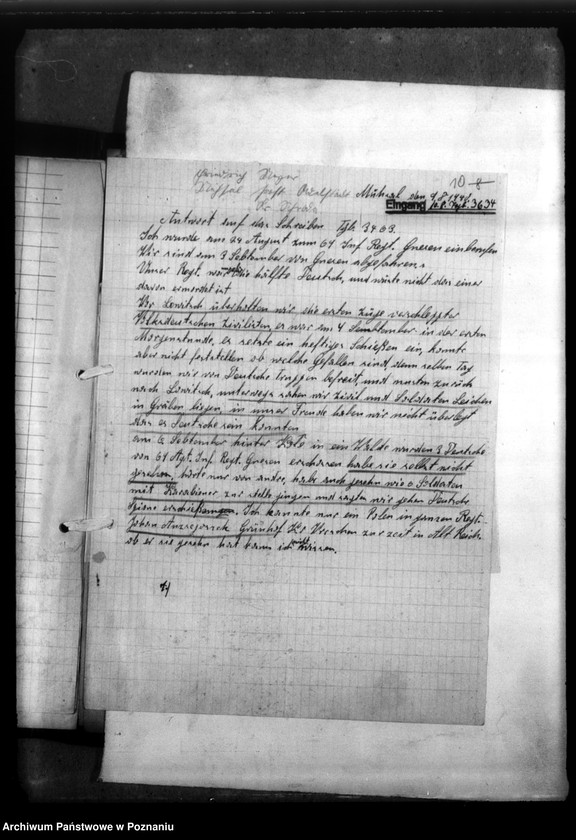 Heinrich
10-8
Mühtal den 9.8.1940
Eingang 10.8. Tgb. 3634
Antwort auf das Schreiben Tgb. 3403.
Ich wurde am 24 August zum 69 Inf. Regt. Gnesen einberufen
Wir sind am 3 September von Gnesen abgefahren.
Unser Regt. war die hälfte Deutsch, und wüste nicht das einer
davon ermordet ist
Vor Lowitsch überholten wir die ersten züge verschlepter
Volksdeutschen Zivilisten, es war am 4 September in der ersten
Morgenstunde, es setzte ein heftiger Schießen ein, konnte
aber nicht feststellen ob welche Gefallen sind, denn selben Tag
wurden wir von Deutsche Truppen befreit, und musten zurück
nach Lowitsch, unterwegs sahen wir Zivil und Soldaten Leichen
in Gräben liegen, in unser Freude haben wir nicht überlegt
das es Deutsche sein konnten
am 6 September hinter Kolo in ein Walde wurden 3 Deutsche
von 69 Inf. Regt. Gnesen erschossen habe sie selbst nicht
gesehen, hörte nur von andre, habe auch gesehn wie 6 Soldaten
mit Karabiener zur stelle gingen und sagten wir gehen Deutsche
Spione erschießen. Ich kannte nur ein Polen in ganzen Regt.
Johan Grünhof Kr. Wreschen zur zeit in Alt Reich
ob er sie gesehn hat kann ich nicht Wissen.
Archiwum Państwowe w Poznaniu